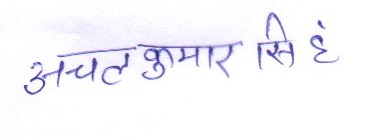 अचल कुमार सिहं